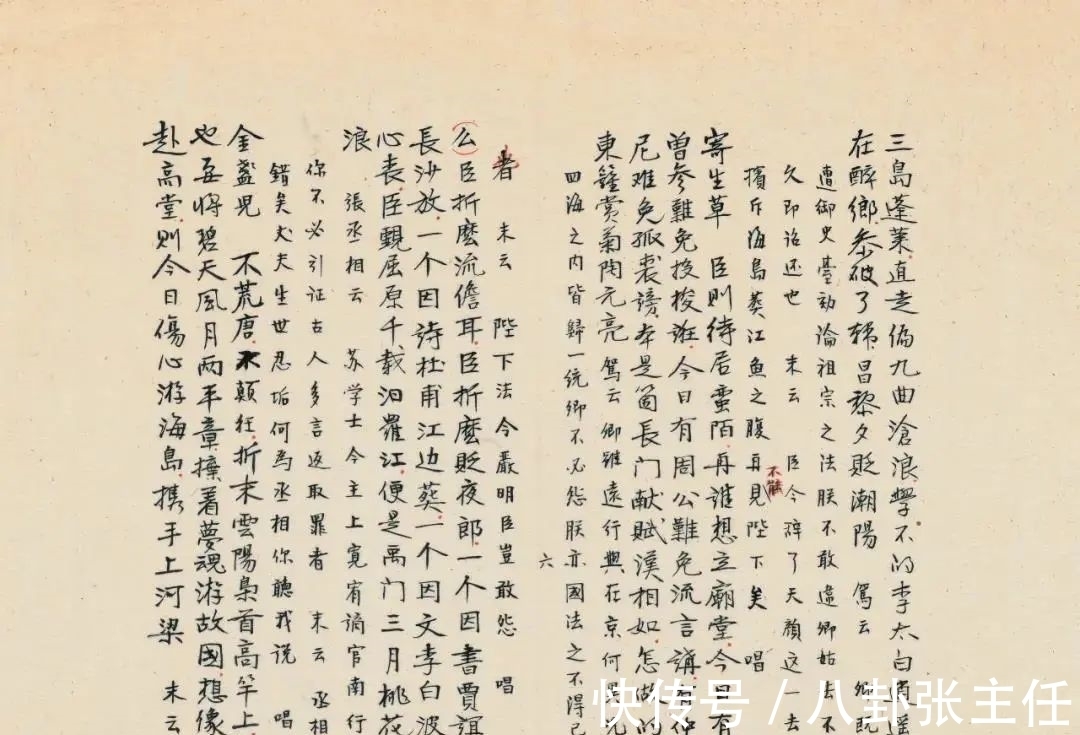 三島蓬萊直走徧九曲滄浪學不的李太白逍遥
在醉鄉叅破了韩昌黎夕貶潮陽 駕云 卿既
遭御史臺劾論祖宗之法朕不敢違卿姑去不
久即詔还也 末云 臣今辞了天顔这一去
擯斥海島葬江魚之腹不能再見陛下矣 唱
寄生草 臣則待居蛮陌再誰想立廟堂今日有
曾参難免投梭誑今日有周公難免流言講有仲
尼难免孤裘謗本是箇長门献賦漢相如怎做的
東籬賞菊陶元亮 駕云 卿雖遠行與在京何
四海之内皆歸一統卿不必怨朕亦國法之不得已
六
者 末云 陛下法令嚴明臣豈敢怨 唱
么 臣折麽流儋耳臣折麽貶夜郎一个因書賈誼
長沙放一个因诗杜甫江边葬一个因文李白波
心丧臣覩屈原千载汨羅江便是禹门三月桃花
浪 張丞相云 苏学士今主上寬宥谪官南行
你不必引证古人多言返取罪者 末云 丞相
錯矣大夫生世忍垢何為丞相你聽我说 唱
金盞児 不荒唐不顛狂折末雲陽梟首高竿上
也每将碧天風月两平章攘着夢魂游故國想像
赴高堂則今日傷心游海島携手上河梁 末云
快传号 / 八卦张主任